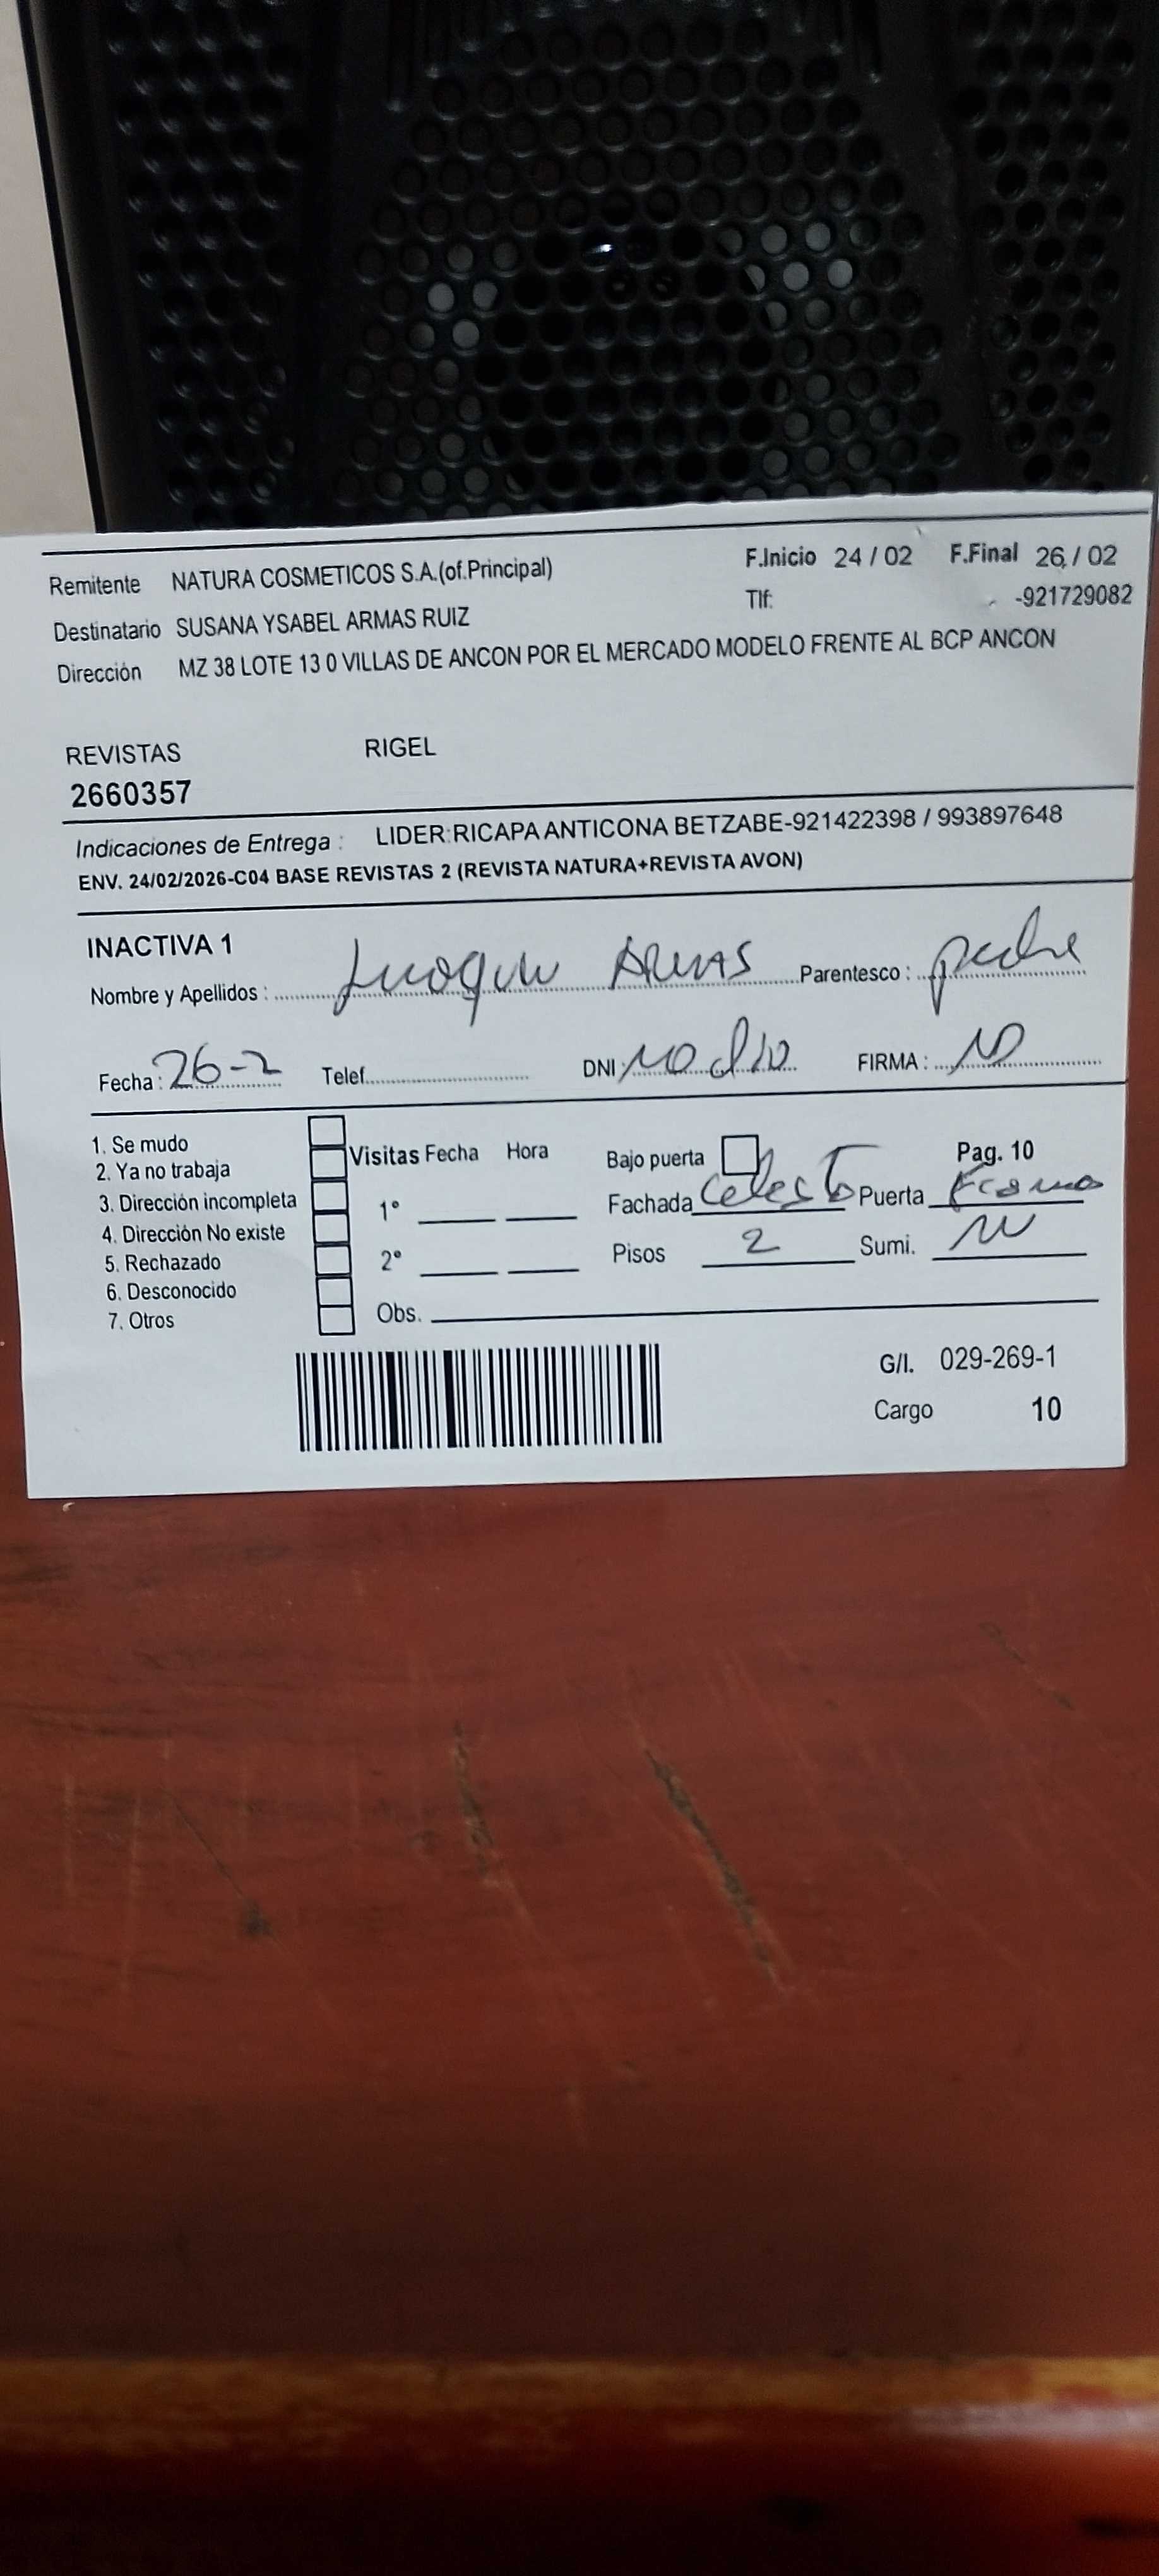 Remitente NATURA COSMETICOS S.A.(of.Principal) F.Inicio 24 / 02 F.Final 26 / 02
Destinatario SUSANA YSABEL ARMAS RUIZ Tlf: -921729082
Dirección MZ 38 LOTE 13 0 VILLAS DE ANCON POR EL MERCADO MODELO FRENTE AL BCP ANCON
REVISTAS RIGEL
2660357
Indicaciones de Entrega : LIDER:RICAPA ANTICONA BETZABE-921422398 / 993897648
ENV. 24/02/2026-C04 BASE REVISTAS 2 (REVISTA NATURA+REVISTA AVON)
INACTIVA 1
Nombre y Apellidos : Armas Parentesco : padre
Fecha : 26-2 Telef. DNI : no dio FIRMA :
1. Se mudo
2. Ya no trabaja
3. Dirección incompleta
4. Dirección No existe
5. Rechazado
6. Desconocido
7. Otros
Visitas Fecha Hora
1°
2°
Obs.
Bajo puerta Pag. 10
Fachada Celeste Puerta
Pisos 2 Sumi.
G/I. 029-269-1
Cargo 10